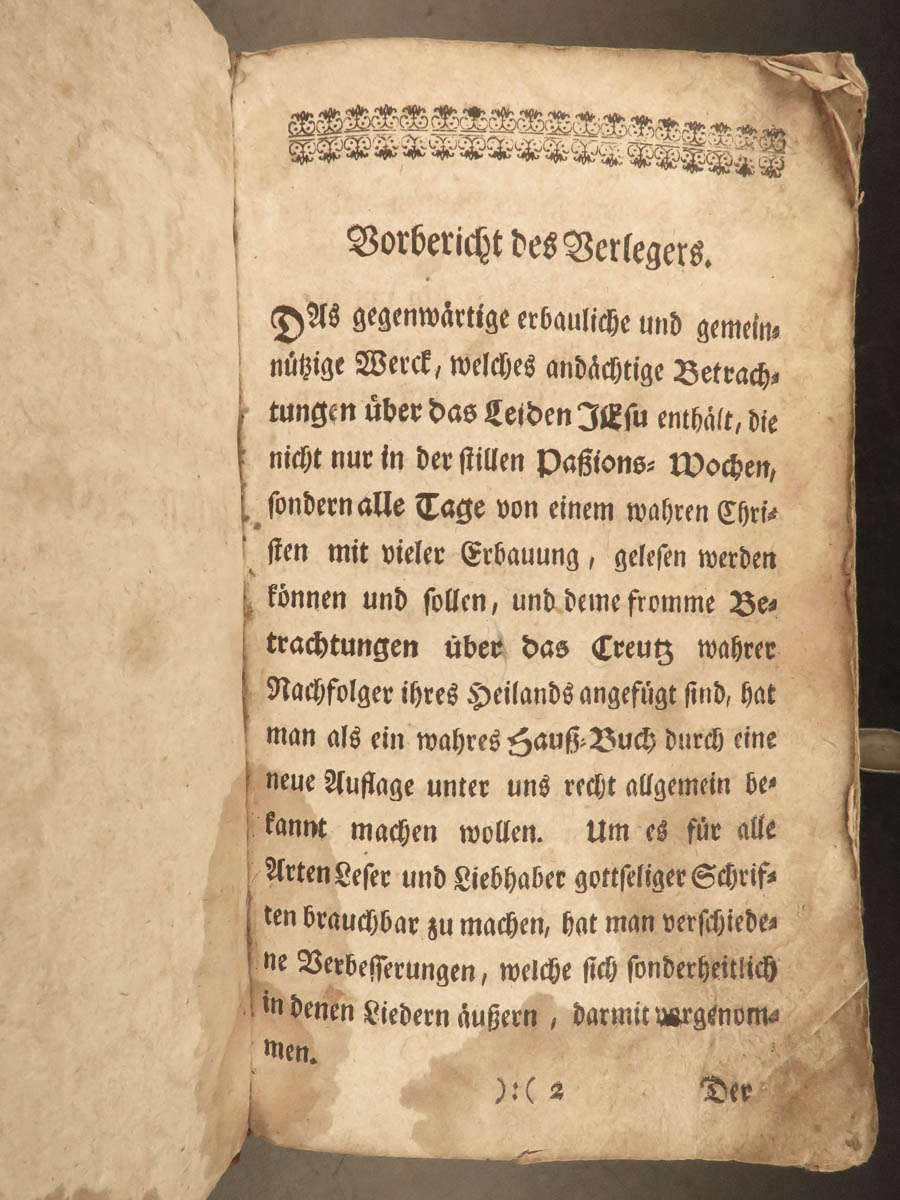 Vorbericht des Verlegers.
DAs gegenwärtige erbauliche und gemein-
nützige Werck, welches andächtige Betrach-
tungen über das Leiden JEsu enthält, die
nicht nur in der stillen Paßions-Wochen,
sondern alle Tage von einem wahren Chri-
sten mit vieler Erbauung, gelesen werden
können und sollen, und deme fromme Be-
trachtungen über das Creutz wahrer
Nachfolger ihres Heilands angefügt sind, hat
man als ein wahres Hauß-Buch durch eine
neue Auflage unter uns recht allgemein be-
kannt machen wollen. Um es für alle
Arten Leser und Liebhaber gottseliger Schrif-
ten brauchbar zu machen, hat man verschiede-
ne Verbesserungen, welche sich sonderheitlich
in denen Liedern äußern, darmit vorgenom-
men.
):( 2 Der